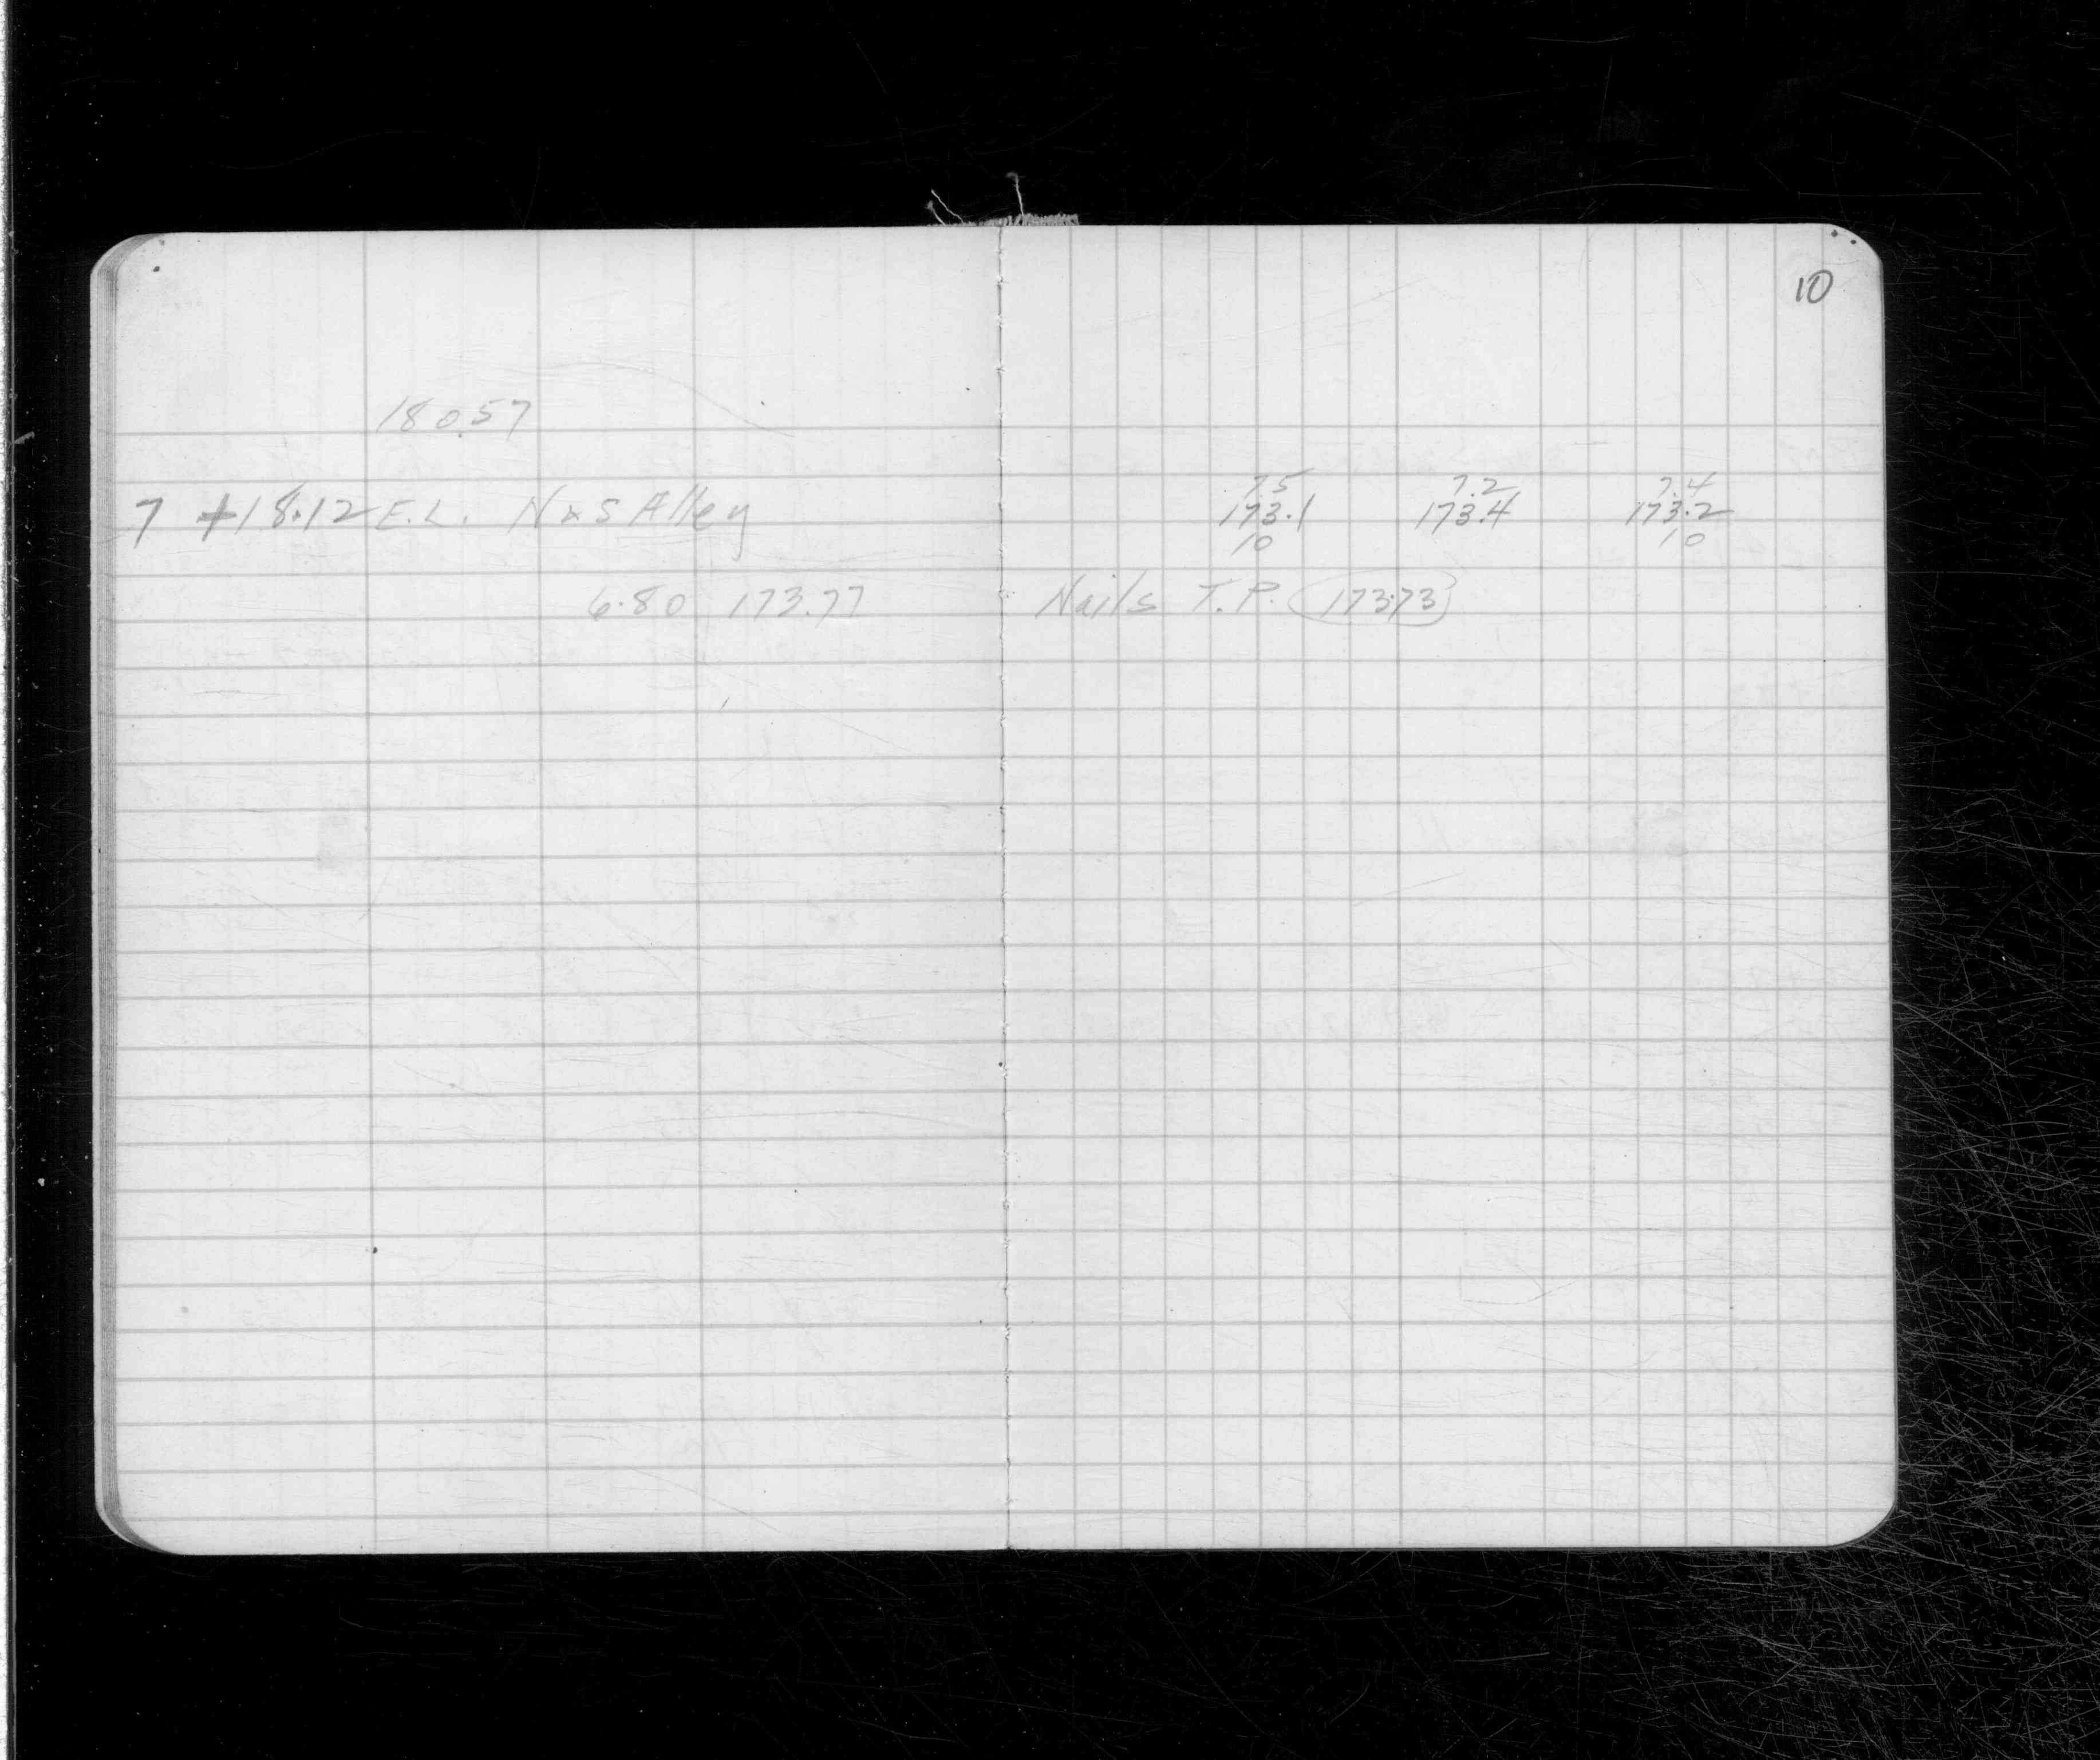 10
180.57
7 +18.12 E.L. N & S Alley
7.5 7.2 7.4
173.1 173.4 173.2
10 10
6.80 173.77 Nails T.P. 173.73